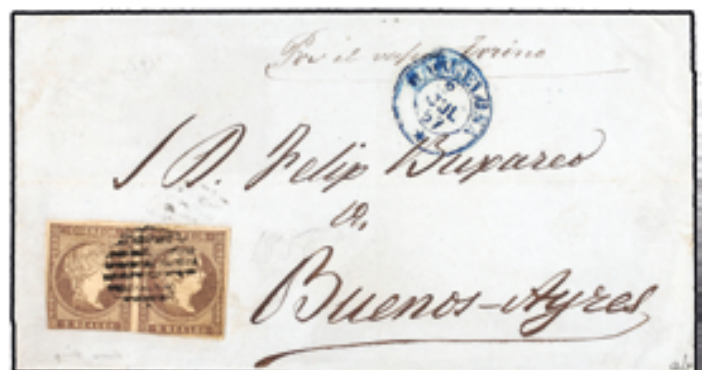 Por el vapor Torino
BARCELONA
6
JUL
57
S D. Felip Buxareo
a.
Buenos-Ayres
CORREOS
2 REALES
2 REALES